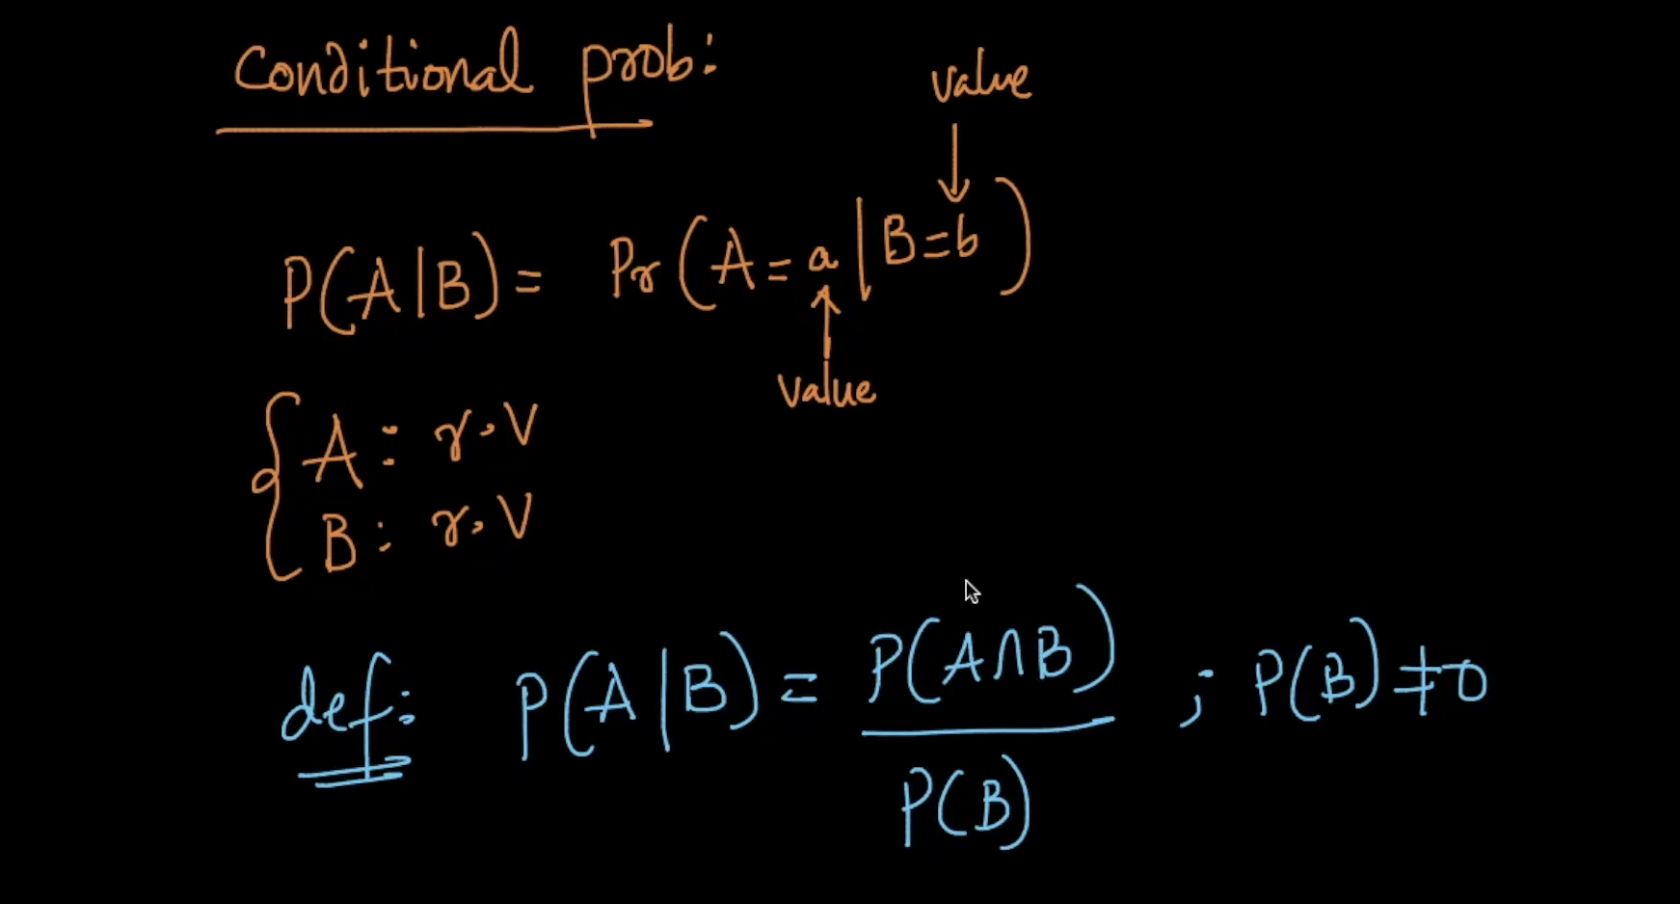 Conditional prob:
value
P(A|B) = Pr(A=a|B=b)
value
A: r.V
B: r.V
def: P(A|B) = P(A∩B) / P(B) ; P(B)≠0